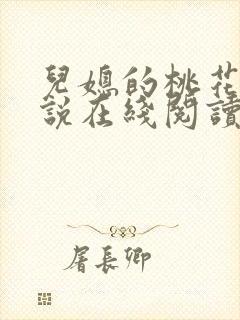 兒媳的桃花
說在綫閱讀
屠長卿